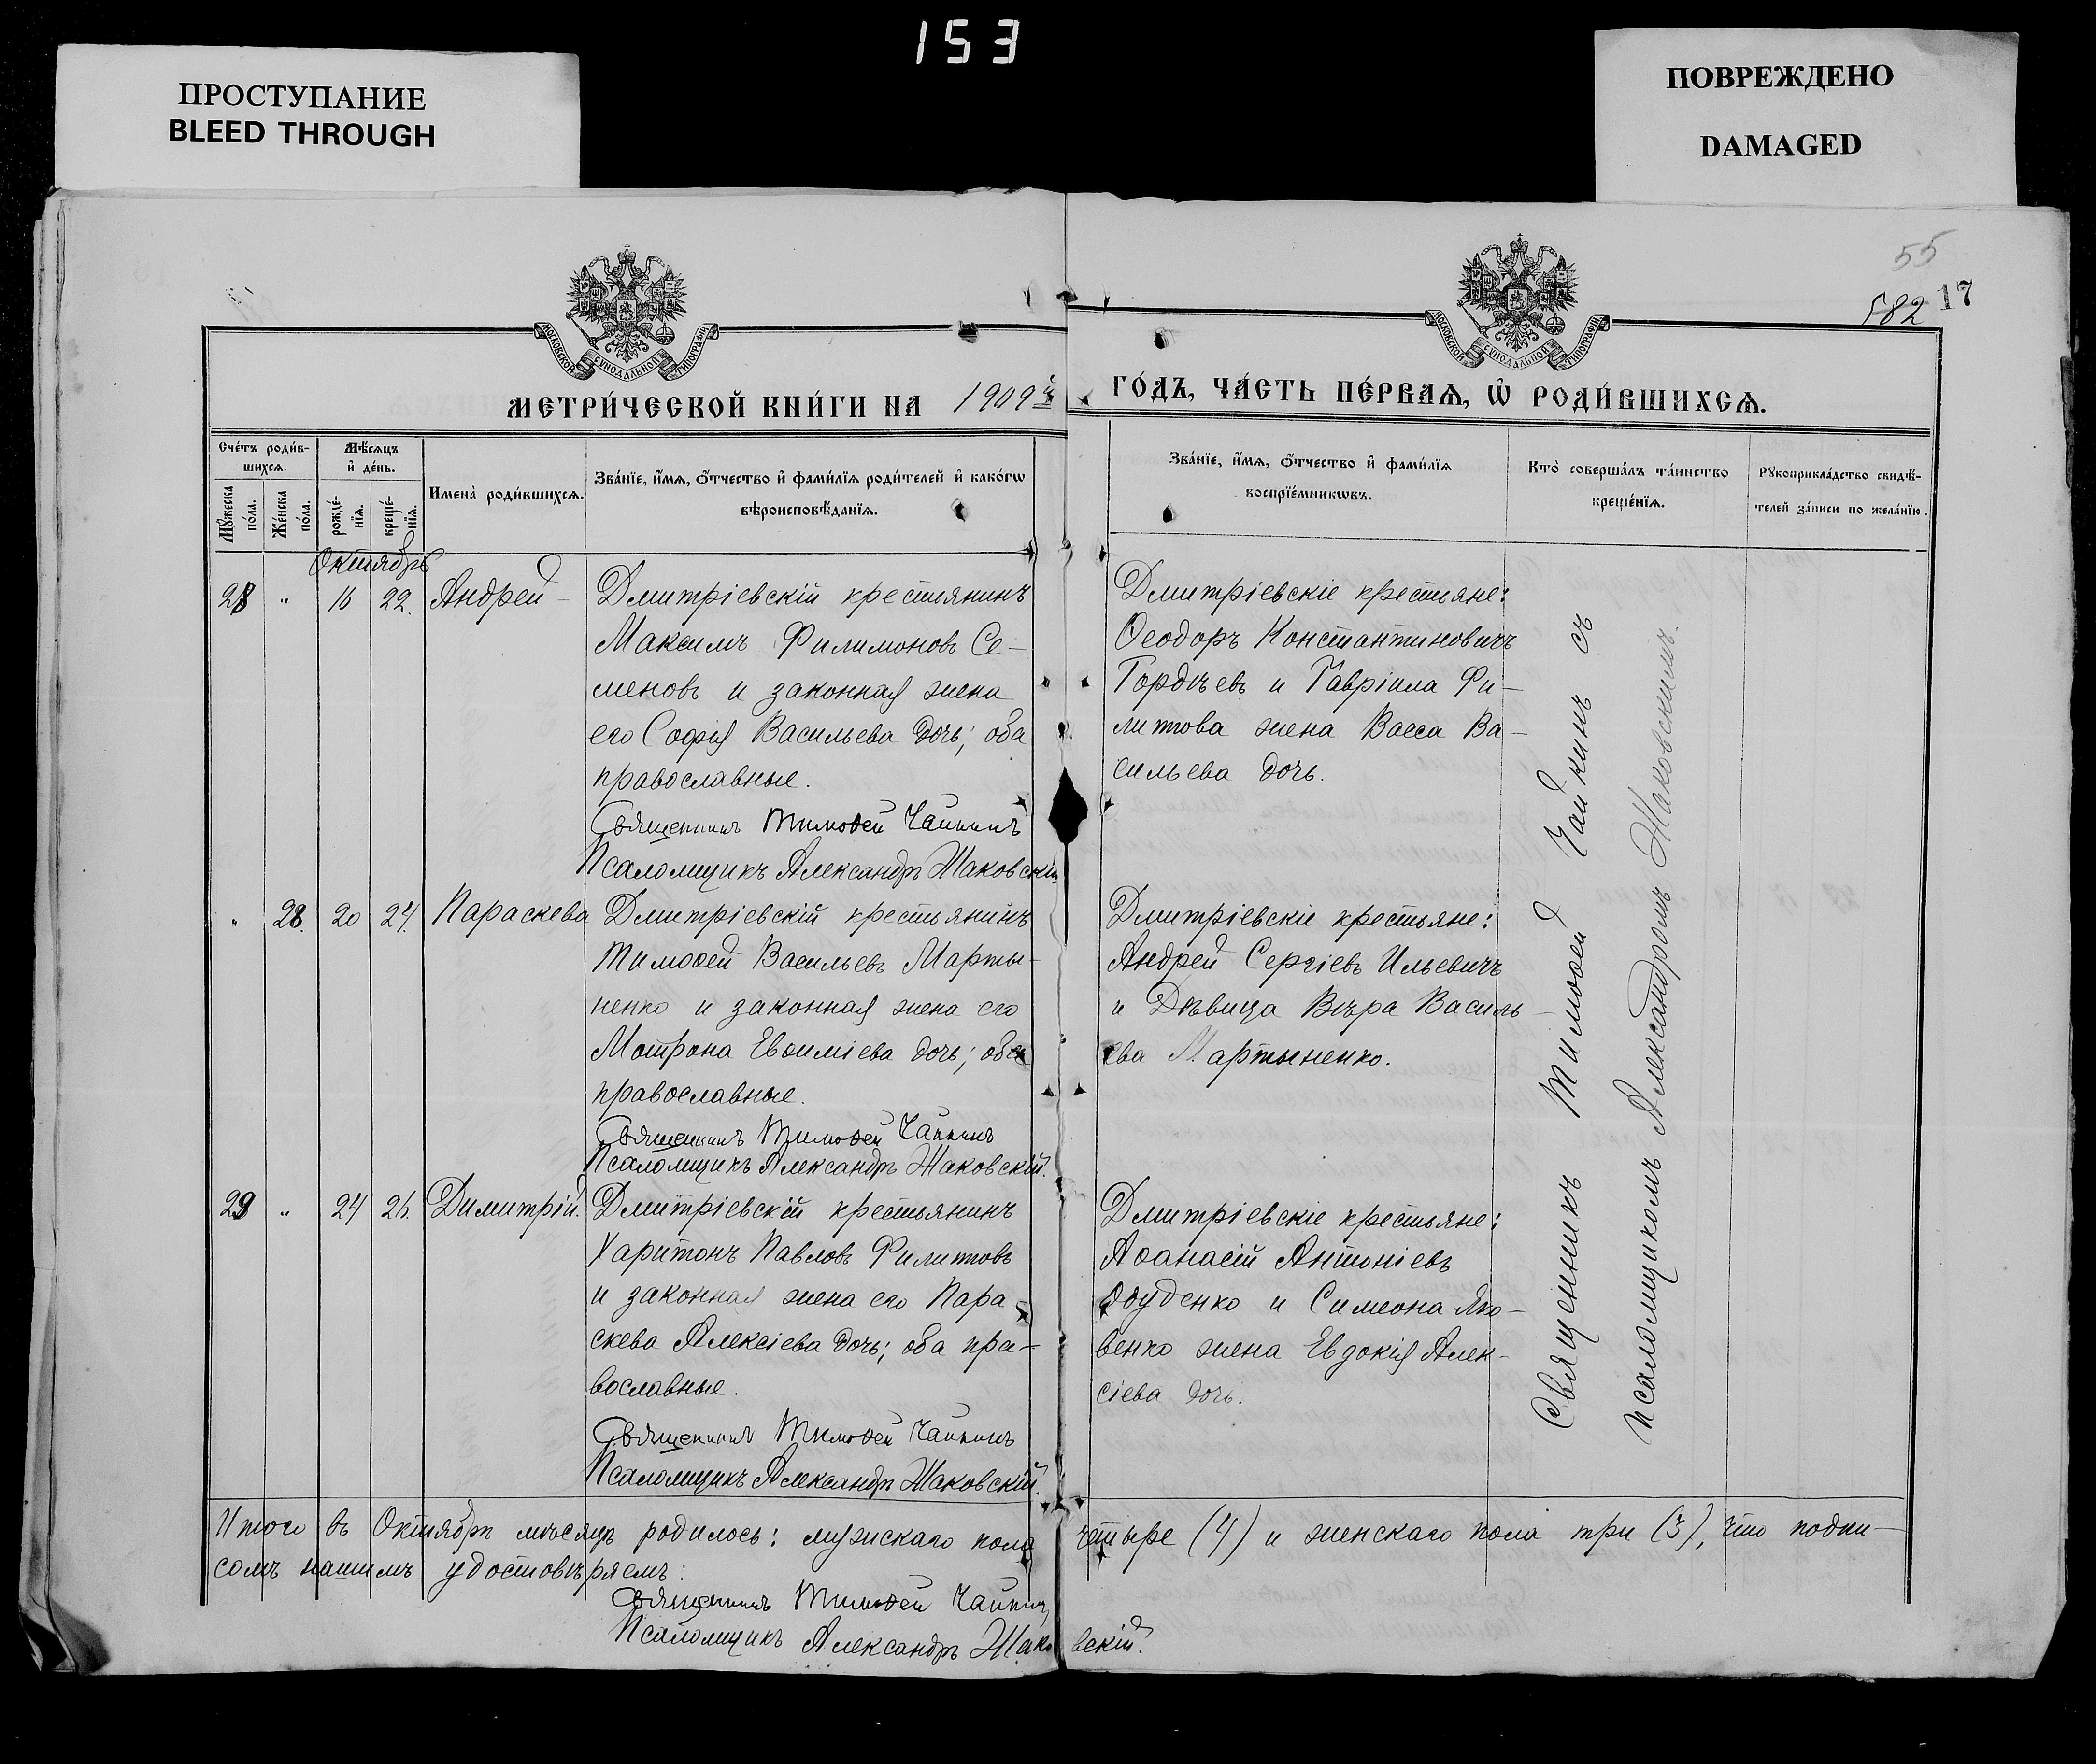 153
ПРОСТУПАНИЕ
BLEED THROUGH
ПОВРЕЖДЕНО
DAMAGED
55
582 17
МОСКОВСКОЙ СУНОДАЛЬНОЙ ТИПОГРАФІИ
МОСКОВСКОЙ СУНОДАЛЬНОЙ ТИПОГРАФІИ
МЕТРИ́ЧЕСКОЙ КНИ́ГИ НА 1909й
ГО́ДЪ, ЧА́СТЬ ПЕ́РВАѦ, Ѡ҆ РОДИ́ВШИХСѦ.
Сче́тъ роди́в-
шихсѧ.
Мѣ́сѧцъ
и҆ де́нь.
Мꙋ́жеска
по́ла.
Же́нска
по́ла.
рожде́-
нїѧ.
креще́-
нїѧ.
Имена̀ роди́вшихсѧ.
Зва́нїе, и҆́мѧ, ѻ҆́тчество и҆ фами́лїѧ роди́телей и҆ како́гѡ
вѣроисповѣ́данїѧ.
Зва́нїе, и҆́мѧ, ѻ҆́тчество и҆ фами́лїѧ
воспрїе́мникѡвъ.
Кто̀ соверша́лъ та́инство
креще́нїѧ.
Рꙋкоприкла́дство свидѣ́-
телей за́писи по жела́нїю.
Октябрь
28 " 16 22. Андрей –
Дмитріевскій крестьянинъ
Максимъ Филимоновъ Се-
меновъ и законная жена
его Софія Васильева дочь; оба
православные.
Священникъ Тимоѳей Чайкинъ
Псаломщикъ Александръ Жаковскій
Дмитріевскіе крестьяне:
Ѳеодоръ Константиновичъ
Гордѣевъ и Гавріила Фи-
липова жена Васса Ва-
сильева дочь.
" 28. 20 24. Параскева
Дмитріевскій крестьянинъ
Тимоѳей Васильевъ Марты-
ненко и законная жена его
Мотрона Евѳиміева дочь; оба
православные.
Священникъ Тимоѳей Чайкинъ
Псаломщикъ Александръ Жаковскій.
Дмитріевскіе крестьяне:
Андрей Сергіевъ Ильевичъ
и Дѣвица Вѣра Василь-
ева Мартыненко.
29 " 24 26. Димитрій.
Дмитріевскій крестьянинъ
Харитонъ Павловъ Филиповъ
и законная жена его Пара-
скева Алексіева дочь; оба пра-
вославные.
Священникъ Тимоѳей Чайкинъ
Псаломщикъ Александръ Жаковскій.
Дмитріевскіе крестьяне:
Аѳанасій Антоніевъ
и Симеона Яко-
венко жена Евдокія Алек-
сіева дочь.
Священникъ Тимоѳей Чайкинъ съ
псаломщикомъ Александромъ Жаковскимъ.
Итого въ Октябрѣ мѣсяцѣ родилось: мужскаго пола четыре (4) и женскаго пола три (3), что подпи-
сомъ нашимъ удостовѣряемъ:
Священникъ Тимоѳей Чайкинъ,
Псаломщикъ Александръ Жаковскій.